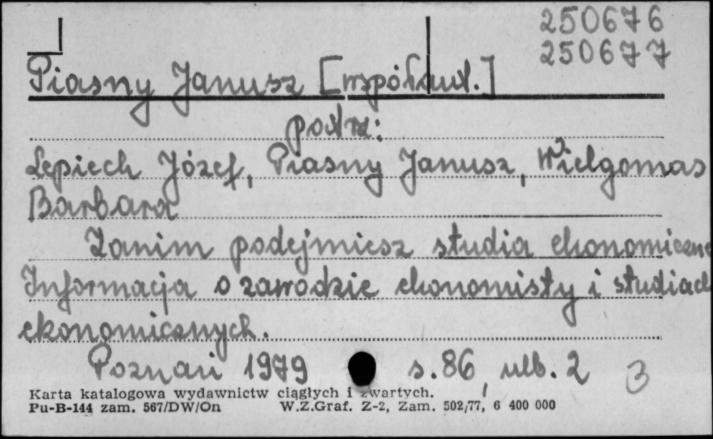 250676
250677
Piasny Janusz [współaut.]
patrz:
Lepiech Józef, Piasny Janusz, Wielgomas
Barbara
Zanim podejmiesz studia ekonomiczne
Informacja o zawodzie ekonomisty i studiach
ekonomicznych.
Poznań 1979 s. 86, ulb. 2 3
Karta katalogowa wydawnictw ciągłych i zwartych.
Pu-B-144 zam. 567/DW/On W.Z.Graf. Z-2, Zam. 502/77, 6 400 000